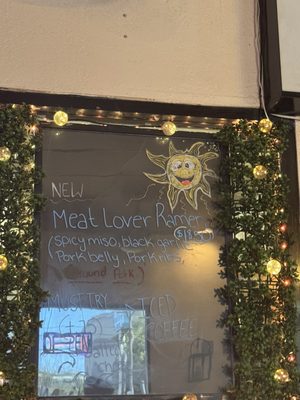 NEW
Meat Lover Ramen
(spicy miso, black garlic
Pork belly, Pork ribs,
Ground Pork)
MUST TRY ICED
COFFEE